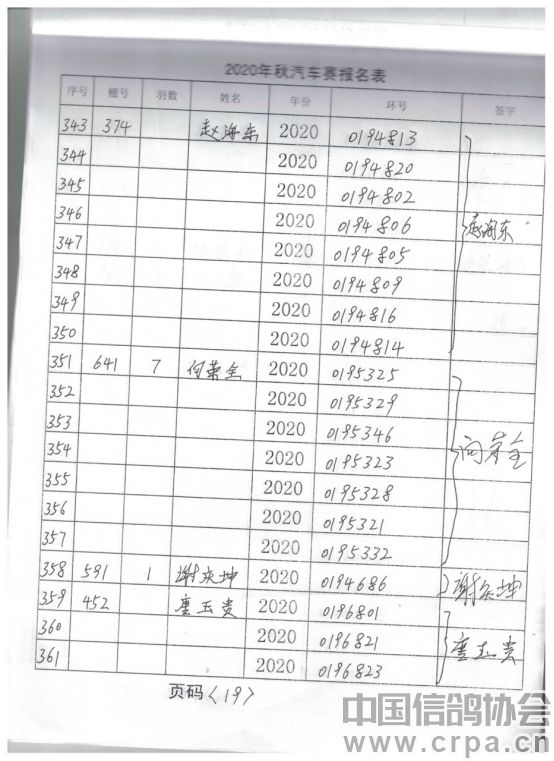 2020年秋汽车赛报名表
序号 棚号 羽数 姓名 年份 环号 签字
343 374 赵海东 2020 0194813
344 2020 0194820
345 2020 0194802
346 2020 0194806 赵海东
347 2020 0194805
348 2020 0194809
349 2020 0194816
350 2020 0194814
351 641 7 何荣全 2020 0195325
352 2020 0195329
353 2020 0195346
354 2020 0195323 何荣全
355 2020 0195328
356 2020 0195321
357 2020 0195332
358 591 1 谢庆坤 2020 0194686 谢庆坤
359 452 唐玉贵 2020 0196801
360 2020 0196821 唐玉贵
361 2020 0196823
页码〈19〉
中国信鸽协会
www.crpa.cn